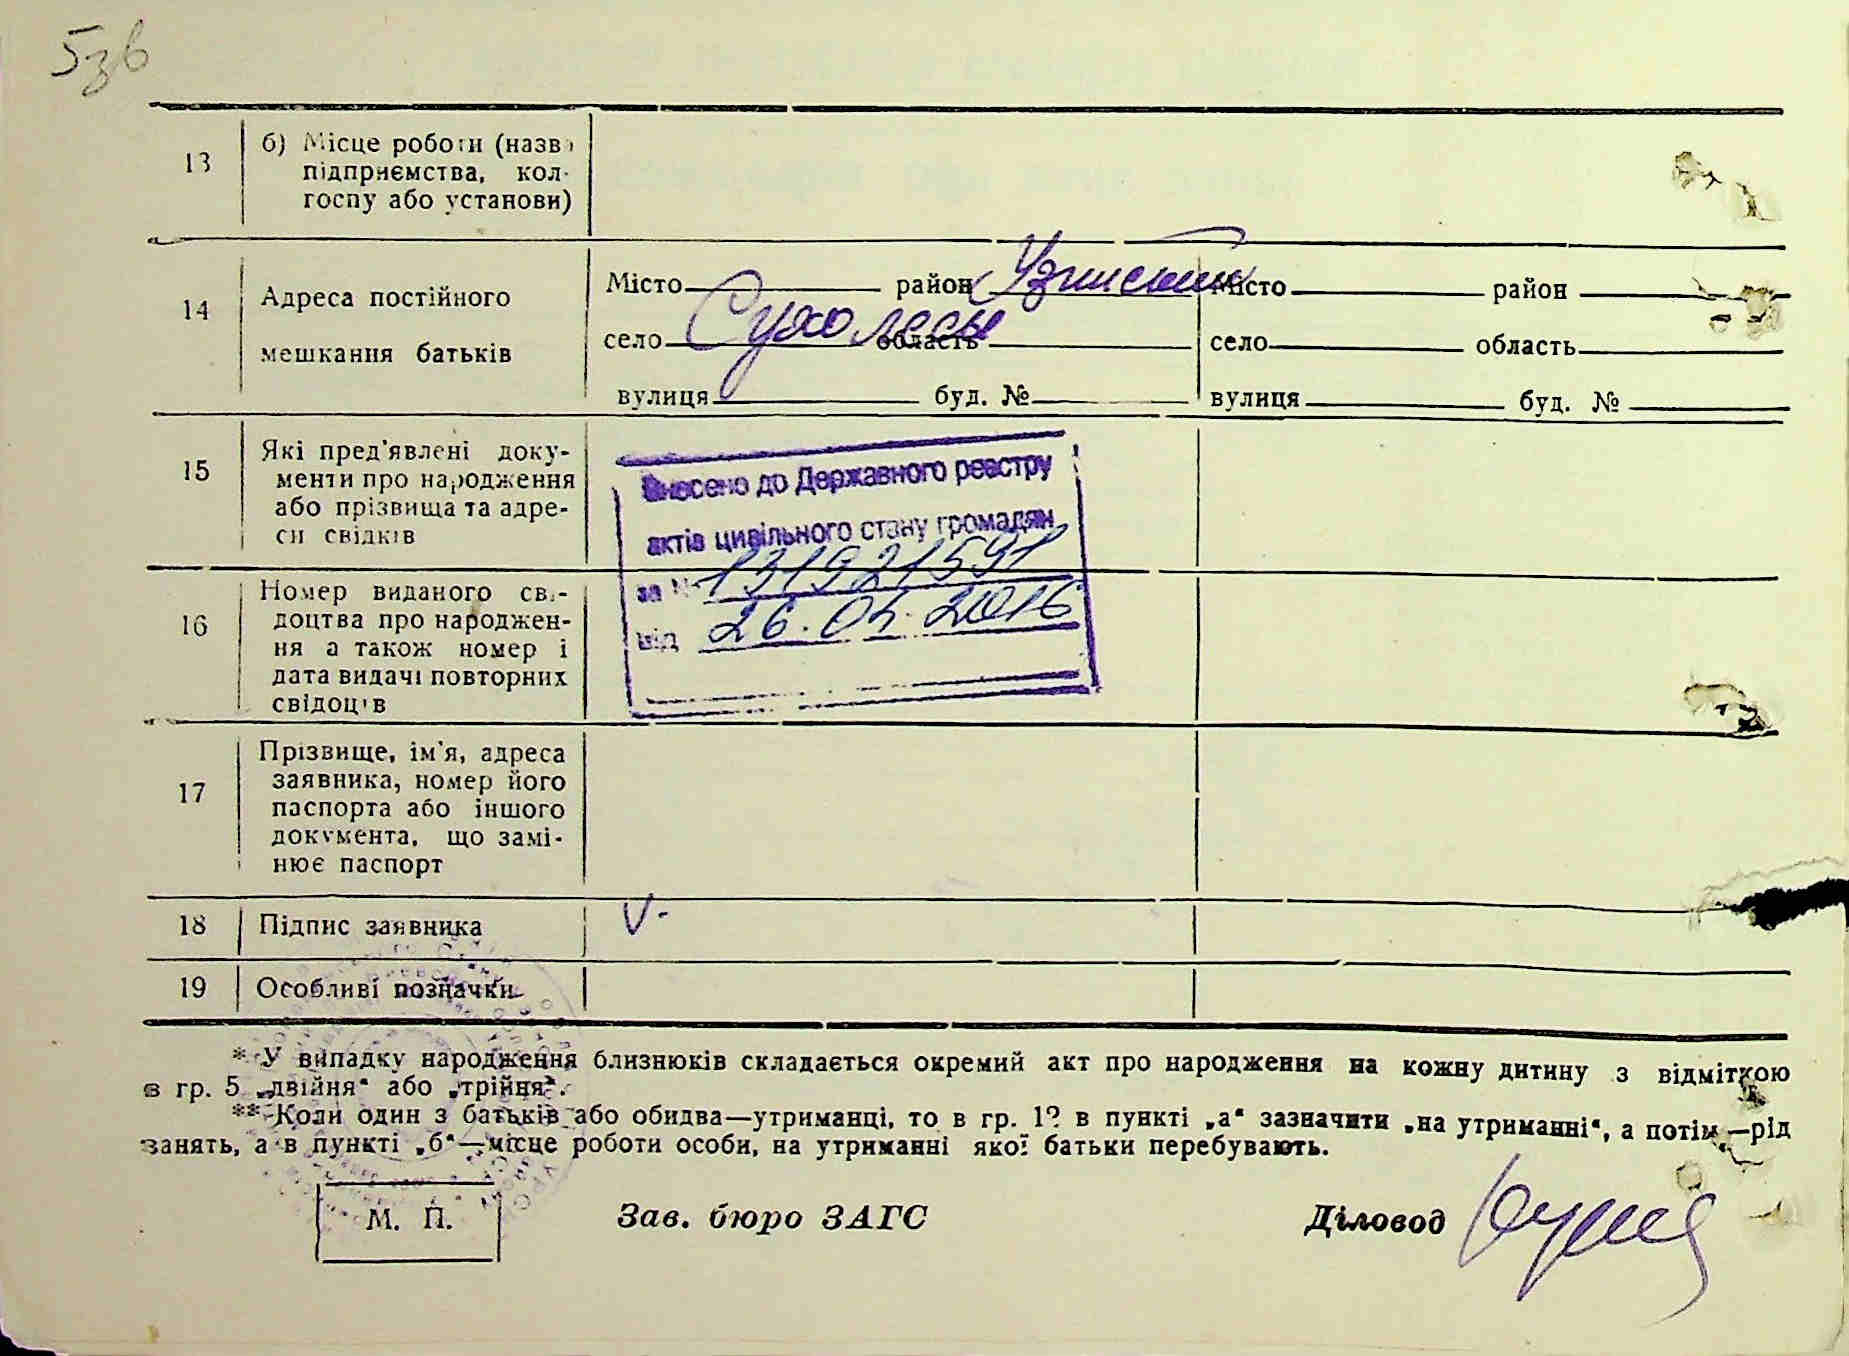 5зв
13 б) Місце роботи (назва
підприємства, кол-
госпу або установи)
14 Адреса постійного
мешкання батьків
Місто район Місто район
село Сухолеси область село область
вулиця буд. № вулиця буд. №
15 Які пред'явлені доку-
менти про народження
або прізвища та адре-
си свідків
Внесено до Державного реєстру
актів цивільного стану громадян
за № 131921591
від 26.04.2016
16 Номер виданого сві-
доцтва про народжен-
ня а також номер і
дата видачі повторних
свідоцтв
17 Прізвище, ім'я, адреса
заявника, номер його
паспорта або іншого
документа, що замі-
нює паспорт
18 Підпис заявника V-
19 Особливі позначки
* У випадку народження близнюків складається окремий акт про народження на кожну дитину з відміткою
в гр. 5 „двійня“ або „трійня“.
** Коли один з батьків або обидва—утриманці, то в гр. 12 в пункті „а“ зазначити „на утриманні“, а потім—рід
занять, а в пункті „б“—місце роботи особи, на утриманні якої батьки перебувають.
М. П. Зав. бюро ЗАГС Діловод